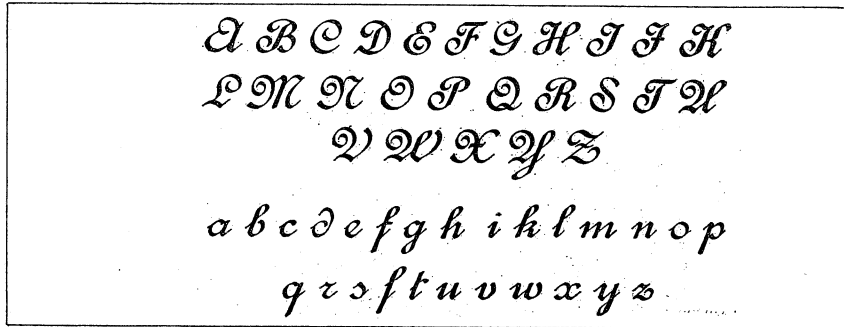 A B C D E F G H I J K
L M N O P Q R S T U
V W X Y Z
a b c d e f g h i k l m n o p
q r s ſ t u v w x y z